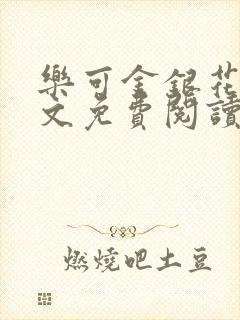 樂可金銀花
文免費閱讀
燃燒吧土豆